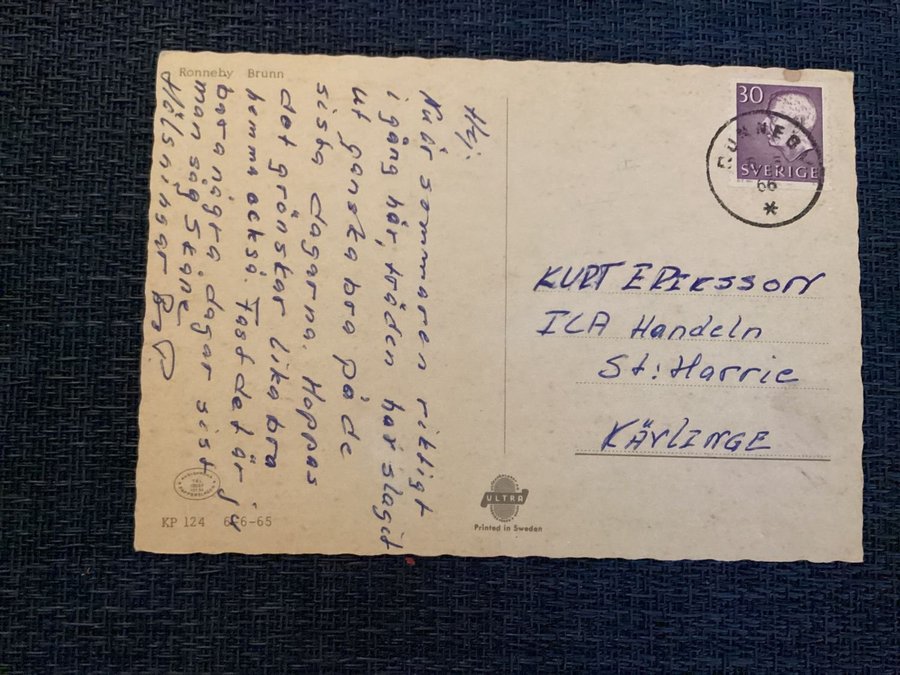 Ronneby Brunn
Hej:
Nu är sommaren riktigt
i gång här, träden har slagit
ut ganska bra på de
sista dagarna. Hoppas
det grönskar lika bra
hemma också. Fast det är ju
bara några dagar sist
man såg Skåne.
Hälsningar
KP 124 6-6-65
ULTRA
Printed in Sweden
30
SVERIGE
RONNEBY
66
KURT ERIKSSON
ICA Handeln
St: Harrie
KÄVLINGE